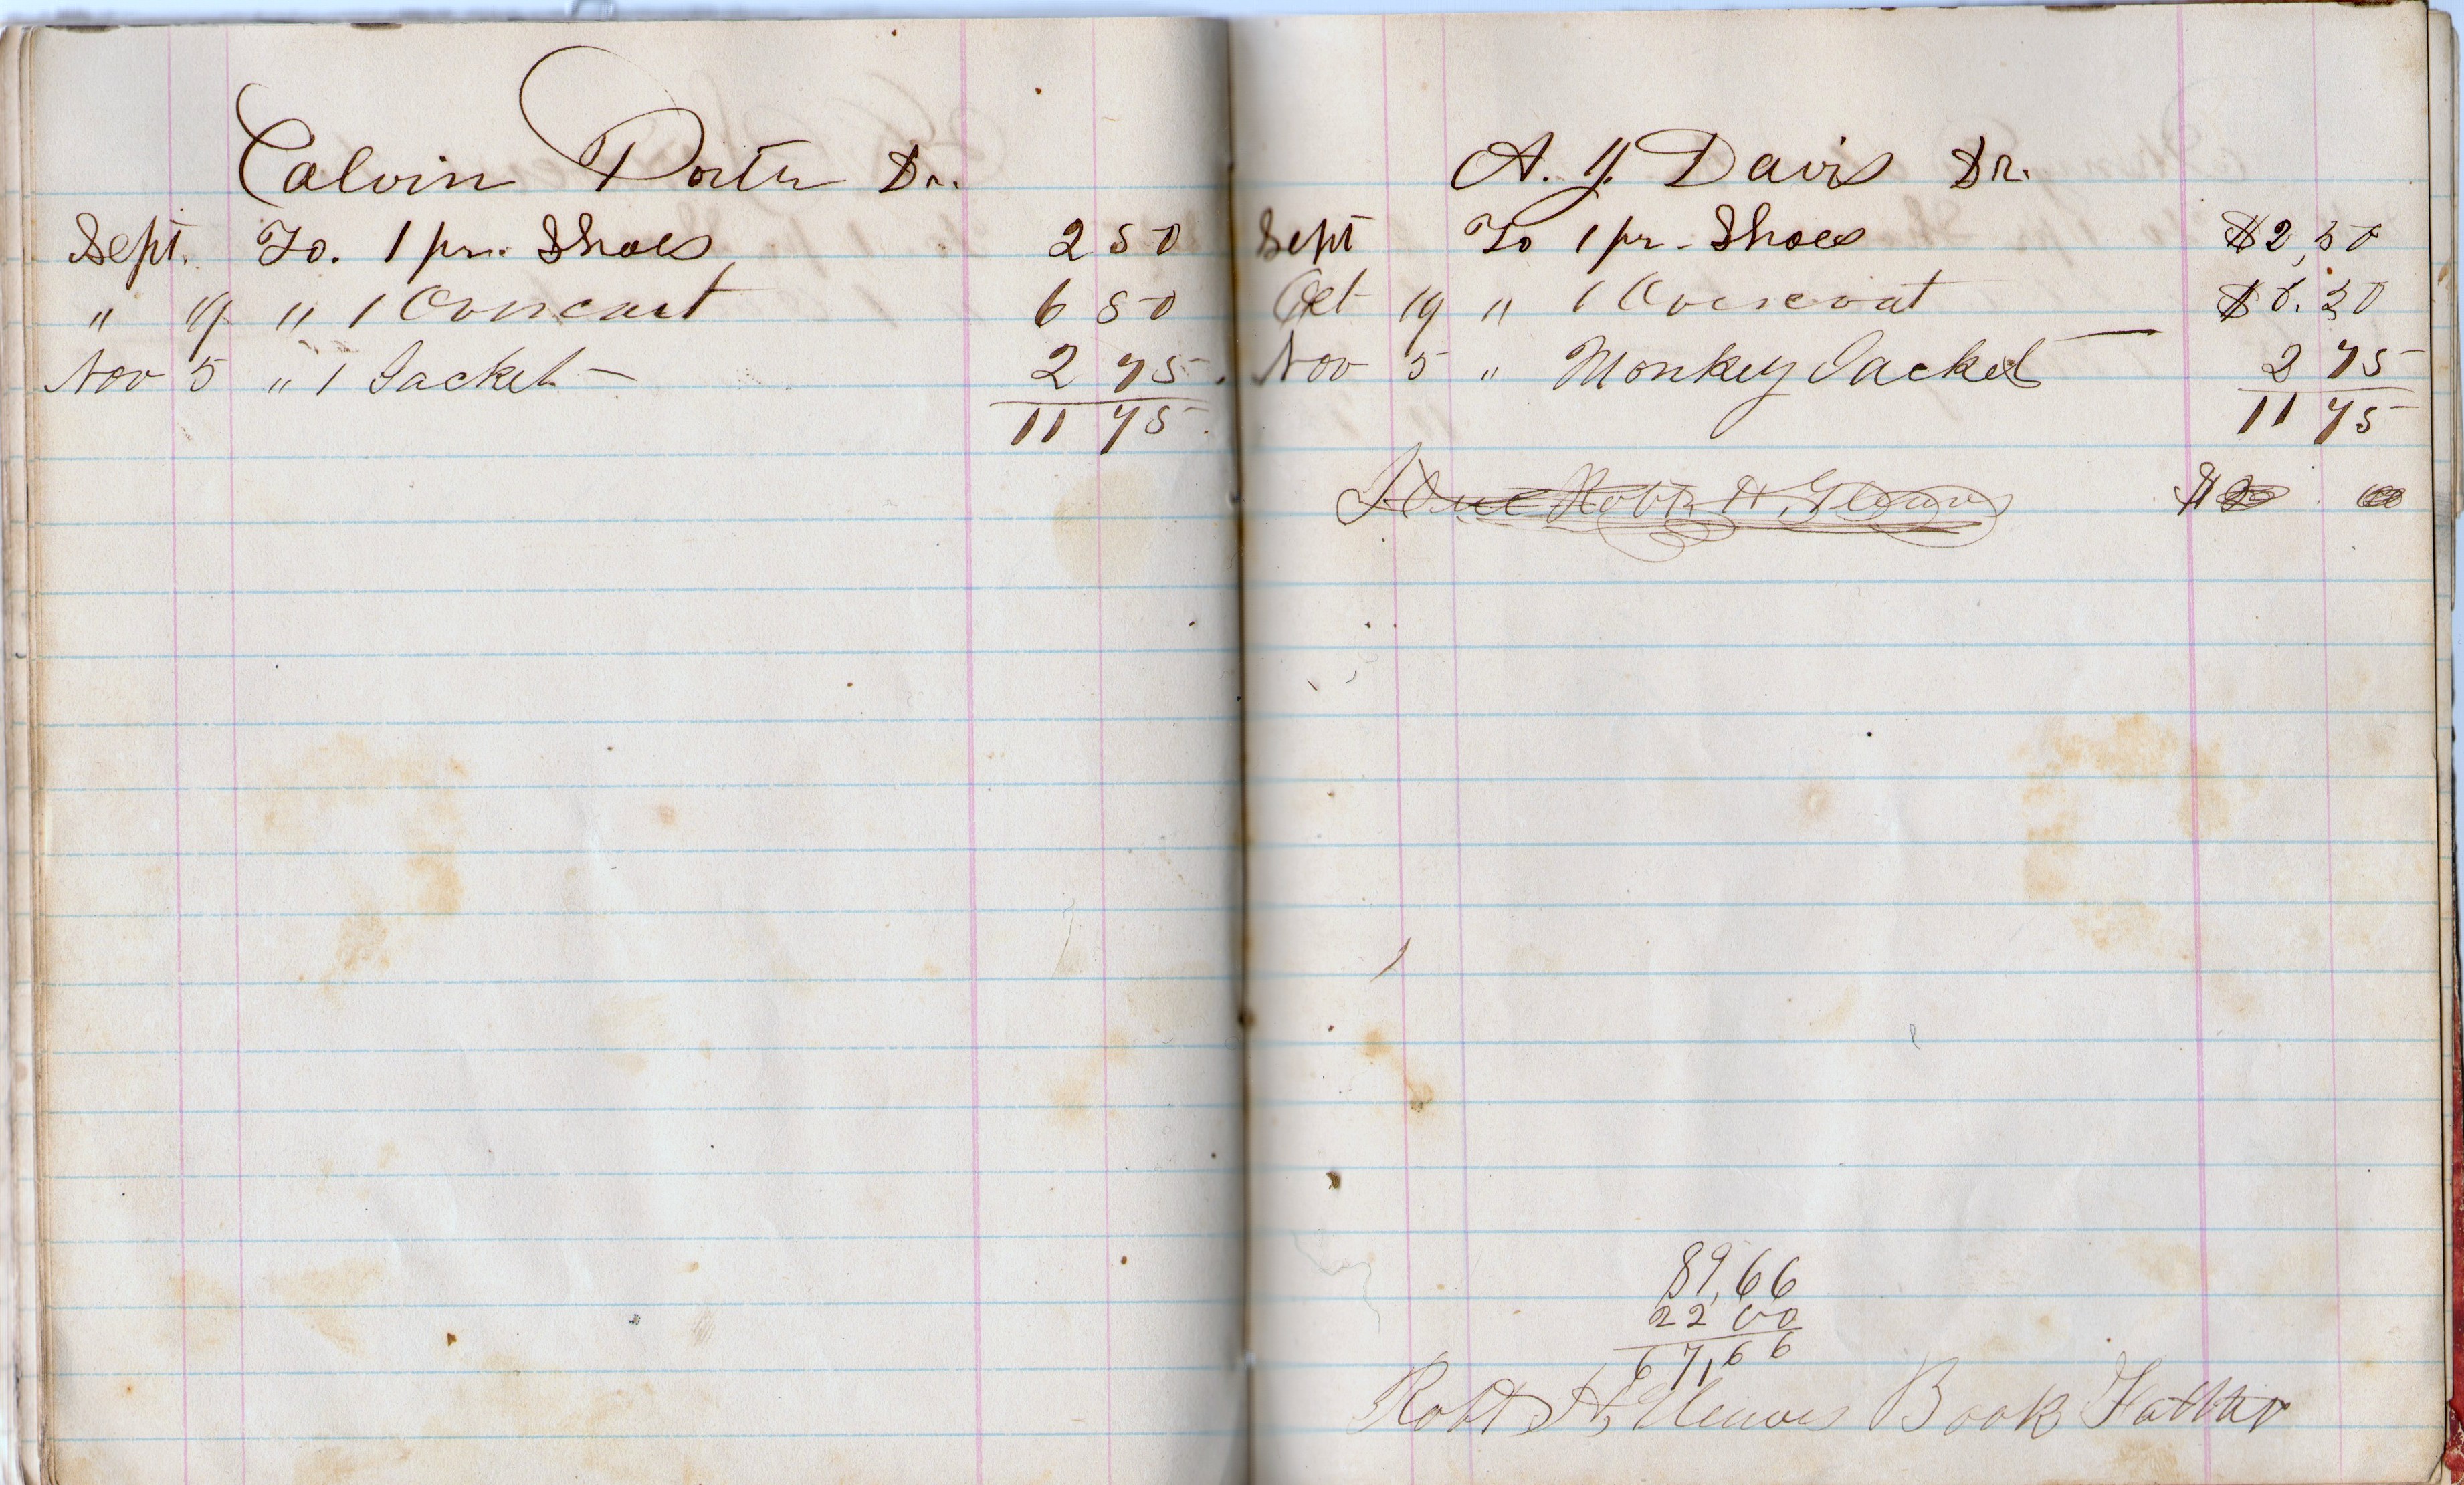 Calvin Porter Dr.
Sept. To. 1 pr. Shoes 2 50
" 19 " 1 Overcoat 6 50
Nov 5 " 1 Jacket — 2 75.
11 75.
A. Y. Davis Dr.
Sept To 1 pr. Shoes $2,50
Oct 19 " 1 Overcoat $6.50
Nov 5 " Monkey Jacket — 2 75
11 75
Due Robt. H.
89,66
22 00
67,66
Robt H, Book Father